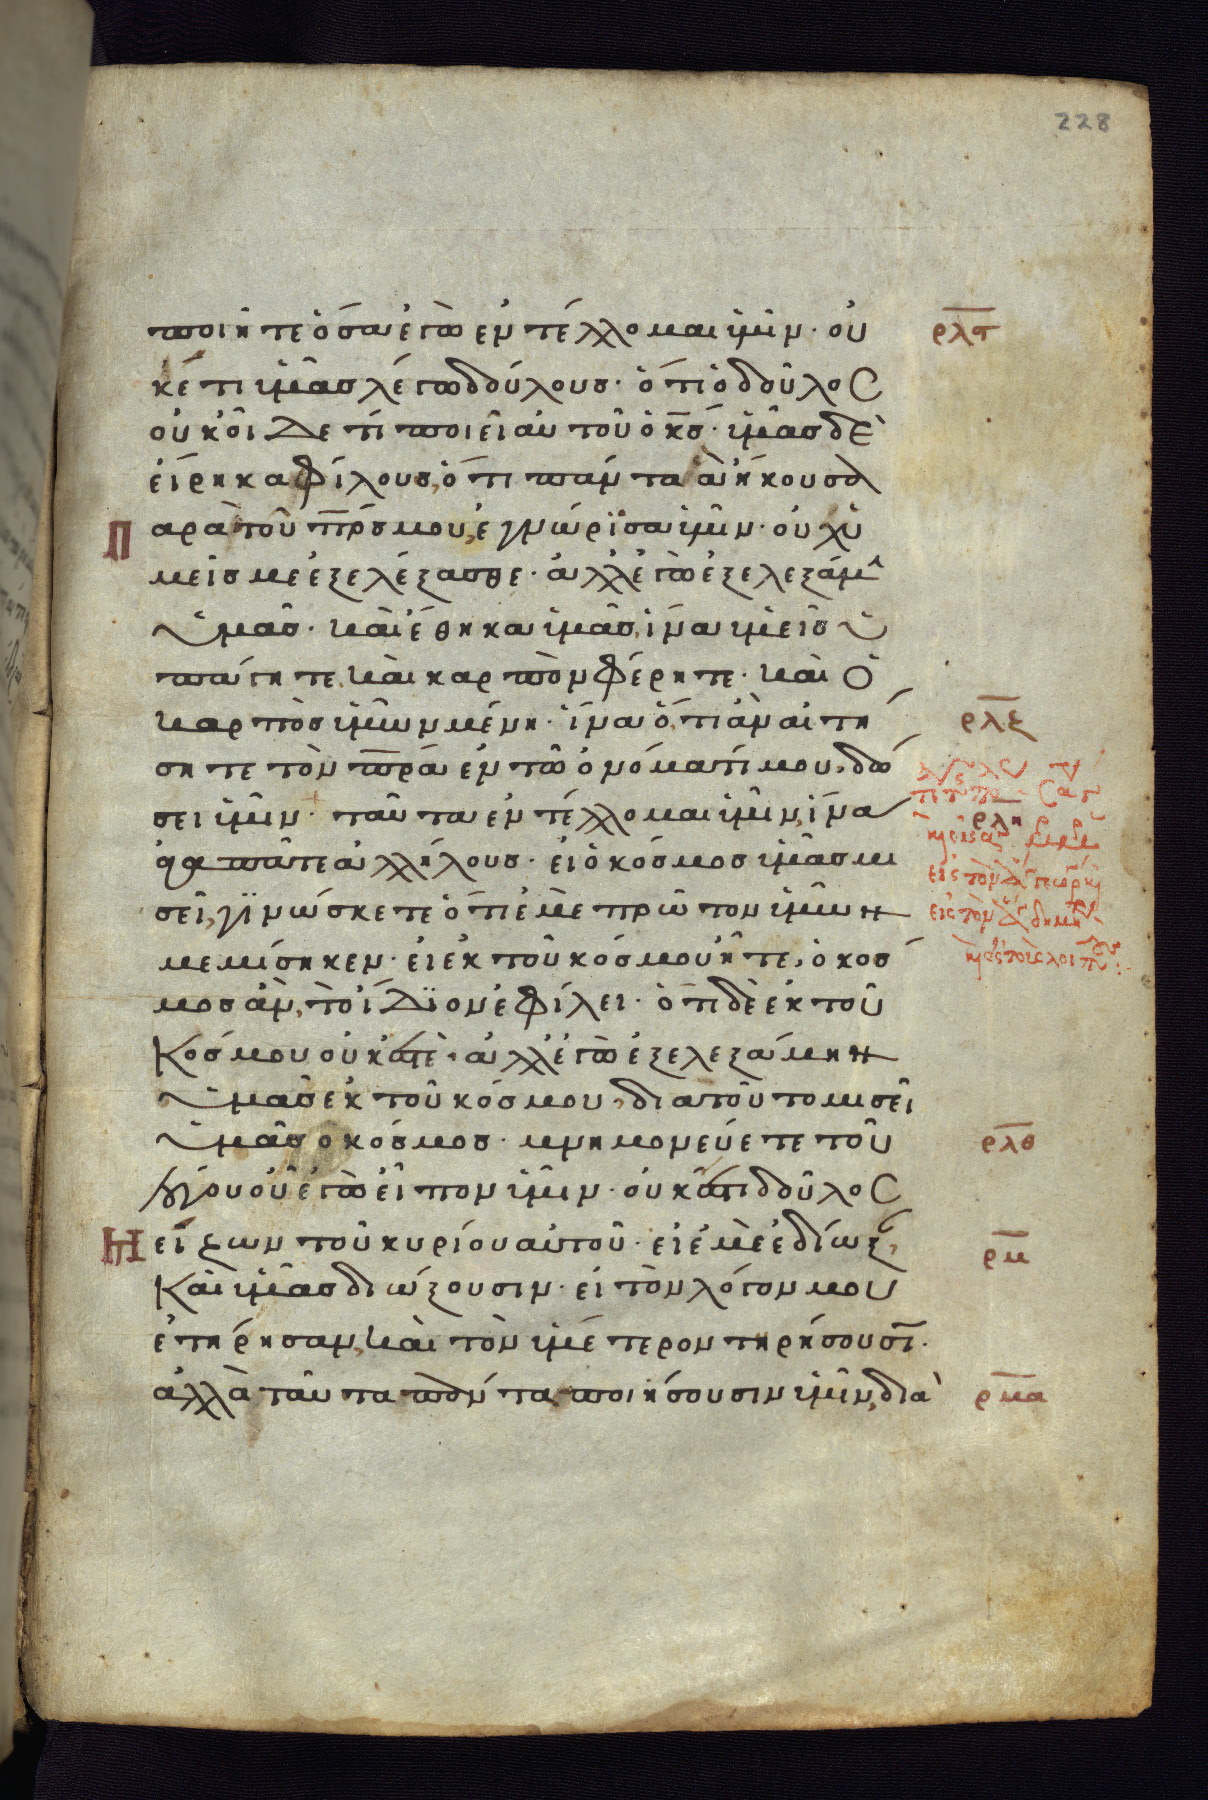 228
ποιῆτε ὅσα ἐγὼ ἐντέλλομαι ὑμῖν· οὐ ρλϛ
κέτι ὑμᾶς λέγω δούλους· ὅτι ὁ δοῦλος
οὐκ οἶδε τί ποιεῖ αὐτοῦ ὁ κς· ὑμᾶς δὲ
εἴρηκα φίλους, ὅτι πάντα ἃ ἤκουσα
Παρὰ τοῦ πρς μου, ἐγνώρϊσα ὑμῖν· οὐχ ὑ
μεῖς με ἐξελέξασθε· ἀλλ' ἐγὼ ἐξελεξάμην
ὑμᾶς· καὶ ἔθηκα ὑμᾶς, ἵνα ὑμεῖς ὑ
πάγητε, καὶ καρπὸν φέρητε· καὶ ὁ
καρπὸς ὑμῶν μένη· ἵνα ὅ,τι ἂν αἰτή ρλζ
σητε τὸν πρα ἐν τῶ ὀνόματί μου, δώ
σει ὑμῖν· ταῦτα ἐντέλλομαι ὑμῖν, ἵνα ρλη
ἀγαπᾶτε ἀλλήλους· εἰ ὁ κόσμος ὑμᾶς μι
σεῖ, γϊνώσκετε ὅτι ἐμὲ πρῶτον ὑμῶν
μεμίσηκεν· εἰ ἐκ τοῦ κόσμου ἦτε, ὁ κόσ
μος ἂν, τὸ ἴδϊον ἐφίλει· ὅτι δὲ ἐκ τοῦ
κόσμου οὐκ ἐστὲ· ἀλλ' ἐγὼ ἐξελεξάμην
ὑμᾶς ἐκ τοῦ κόσμου, δια τοῦτο μισεῖ
ὑμᾶς ὁ κόσμος· μνημονεύετε τοῦ ρλθ
λόγου οὗ ἐγὼ εἶπον ὑμῖν· οὐκ ἔστι δοῦλος
Μείζων τοῦ κυρίου αὐτοῦ· εἰ ἐμὲ ἐδίωξαν, ρμ
καὶ ὑμᾶς διώξουσιν· εἰ τὸν λόγον μου
ἐτήρησαν, καὶ τὸν ὑμέτερον τηρήσουσι·
ἀλλὰ ταῦτα πάντα ποιήσουσιν ὑμῖν, διὰ ρμα